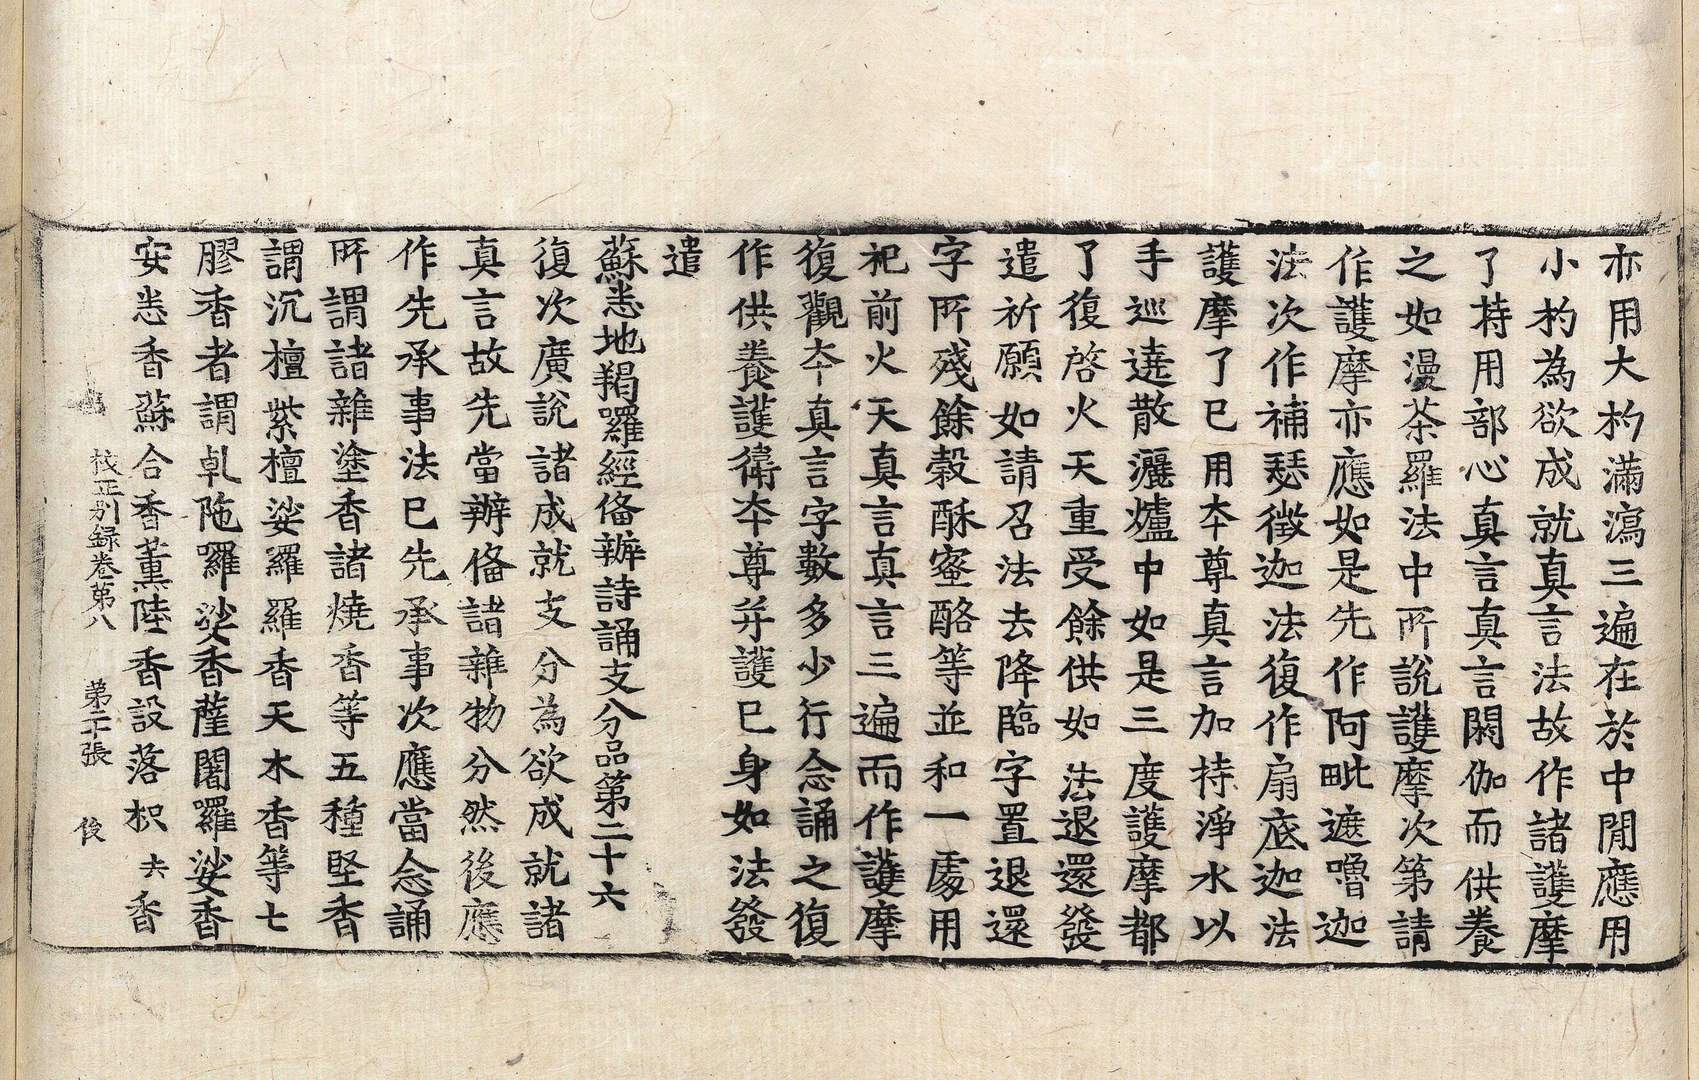 亦用大杓滿瀉三遍在於中閒應用
小杓為欲成就真言法故作諸護摩
了持用部心真言真言閼伽而供養
之如漫茶羅法中所說護摩次第請
作護摩亦應如是先作阿毗遮嚕迦
法次作補瑟徵迦法復作扇底迦法
護摩了已用本尊真言加持淨水以
手巡遶散灑爐中如是三度護摩都
了復啓火天重受餘供如法退還發
遣祈願如請召法去降臨字置退還
字所殘餘穀酥蜜酪等並和一處用
祀前火天真言真言三遍而作護摩
復觀本真言字數多少行念誦之復
作供養護衛本尊并護已身如法發
遣
蘇悉地羯囉經俻辦詩誦支分品第二十六
復次廣說諸成就支分為欲成就諸
真言故先當辦俻諸雜物分然後應
作先承事法已先承事次應當念誦
所謂諸雜塗香諸燒香等五種堅香
謂沉檀紫檀娑羅羅香天木香等七
膠香者謂乹陁囉娑香薩闍羅娑香
安悉香蘇合香薰陸香設落枳 夫 香
校正別錄卷第八 第二十張 俊